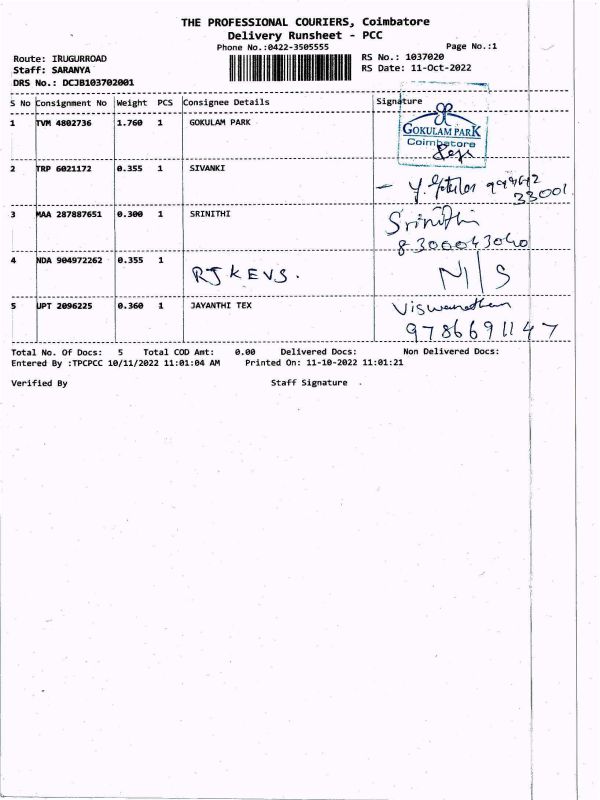 THE PROFESSIONAL COURIERS, Coimbatore
Delivery Runsheet - PCC
Phone No.:0422-3505555 Page No.:1
Route: IRUGURROAD RS No.: 1037020
Staff: SARANYA RS Date: 11-Oct-2022
DRS No.: DCJB103702001
S No Consignment No Weight PCS Consignee Details Signature
1 TVM 4802736 1.760 1 GOKULAM PARK
GOKULAM PARK
Coimbatore
2 TRP 6021172 0.355 1 SIVANKI
33001
3 MAA 287887651 0.300 1 SRINITHI Srinithi
8300043040
4 NDA 904972262 0.355 1
RJ KEVS.
5 UPT 2096225 0.360 1 JAYANTHI TEX Viswanathan
9786691147
Total No. Of Docs: 5 Total COD Amt: 0.00 Delivered Docs: Non Delivered Docs:
Entered By :TPCPCC 10/11/2022 11:01:04 AM Printed On: 11-10-2022 11:01:21
Verified By Staff Signature